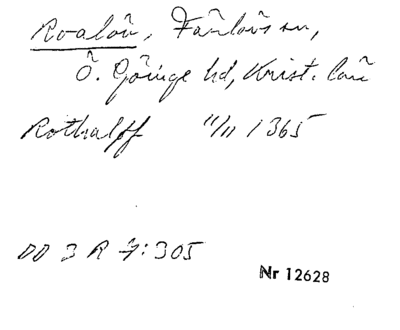 Roalöv, Färlövs sn,
Ö. Göinge hd, Krist. län
Rothalff 11/11 1365
DD 3 R 7:305
Nr 12628